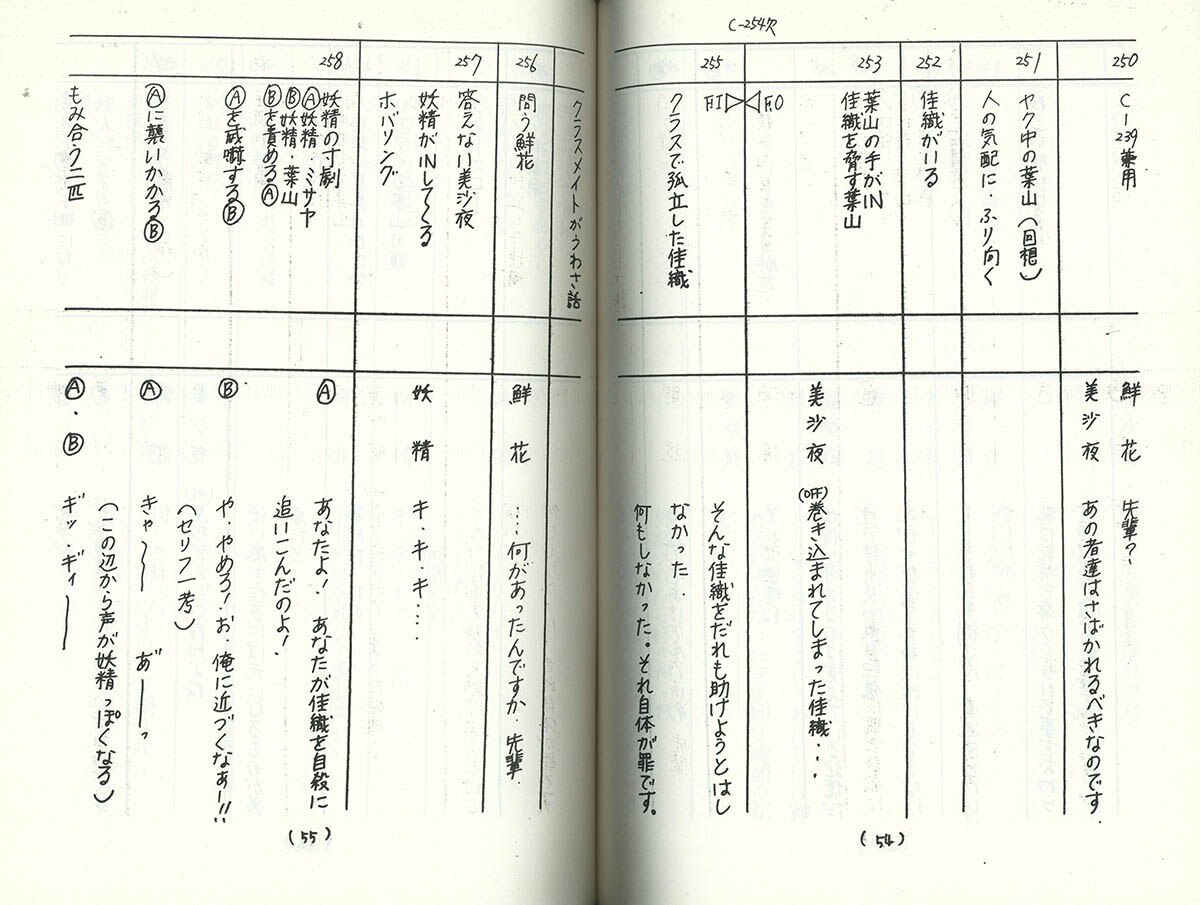 C-254欠
250
C-239兼用
鮮花 先輩?
美沙夜 あの者達はさばかれるべきなのです.
251
ヤク中の葉山(回想)
人の気配に・ふり向く
252
佳織がいる
253
葉山の手がIN
佳織を脅す葉山
美沙夜 (OFF)巻き込まれてしまった佳織・・・
FO
FI
255
クラスで孤立した佳織
そんな佳織をだれも助けようとはし
なかった.
何もしなかった。それ自体が罪です。
(54)
クラスメイトがうわさ話
256
問う鮮花
鮮花 …何があったんですか・先輩.
257
答えない美沙夜
妖精がINしてくる
ホバリング
妖精 キ・キ・キ・・・・
258
妖精の寸劇
Ⓐ妖精・ミサヤ
Ⓑ妖精・葉山
Ⓑを責めるⒶ
Ⓐ あなたよ! あなたが佳織を自殺に
追いこんだのよ!
Ⓐを威嚇するⒷ
Ⓑ や・やめろ!お・俺に近づくなぁー!!
(セリフ一考)
Ⓐに襲いかかるⒷ
Ⓐ きゃ〜〜 あ゛ーーっ
(この辺から声が妖精っぽくなる)
もみ合う二匹
Ⓐ・Ⓑ ギッ・ギィーー
(55)